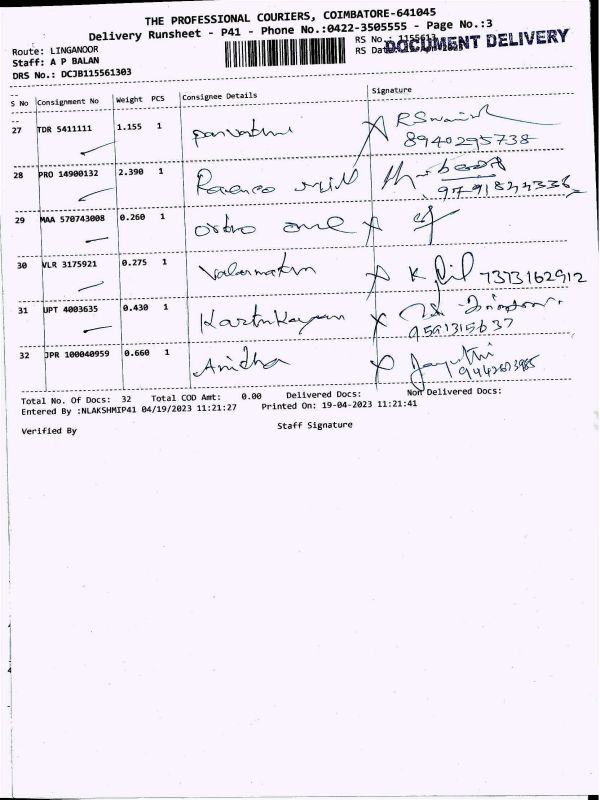 THE PROFESSIONAL COURIERS, COIMBATORE-641045
Delivery Runsheet - P41 - Phone No.:0422-3505555 - Page No.:3
Route: LINGANOOR
RS No.:
DOCUMENT DELIVERY
Staff: A P BALAN
RS Date:
DRS No.: DCJB115561303
S No Consignment No Weight PCS Consignee Details Signature
27 TDR 5411111 1.155 1 X
8940295738
28 PRO 14900132 2.390 1
29 MAA 570743008 0.260 1 ortho one X
30 VLR 3175921 0.275 1 Valarmathi X 7373162912
31 UPT 4003635 0.430 1 Karthikeyan X
9591315637
32 JPR 100040959 0.660 1 Anitha X Jayathi
Total No. Of Docs: 32 Total COD Amt: 0.00 Delivered Docs: Non Delivered Docs:
Entered By :NLAKSHMIP41 04/19/2023 11:21:27 Printed On: 19-04-2023 11:21:41
Verified By Staff Signature